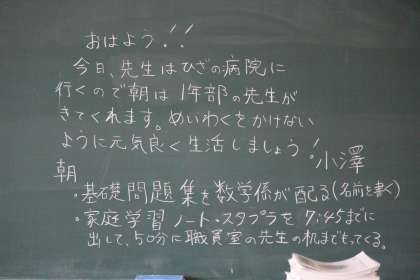 おはよう!!
今日、先生はひざの病院に
行くので朝は1年部の先生が
きてくれます。めいわくをかけない
ように元気良く生活しましょう!小澤
朝
・基礎問題集を数学係が配る(名前を書く)
・家庭学習ノート・スタプラを7:45までに
出して、50分に職員室の先生の机までもってくる。